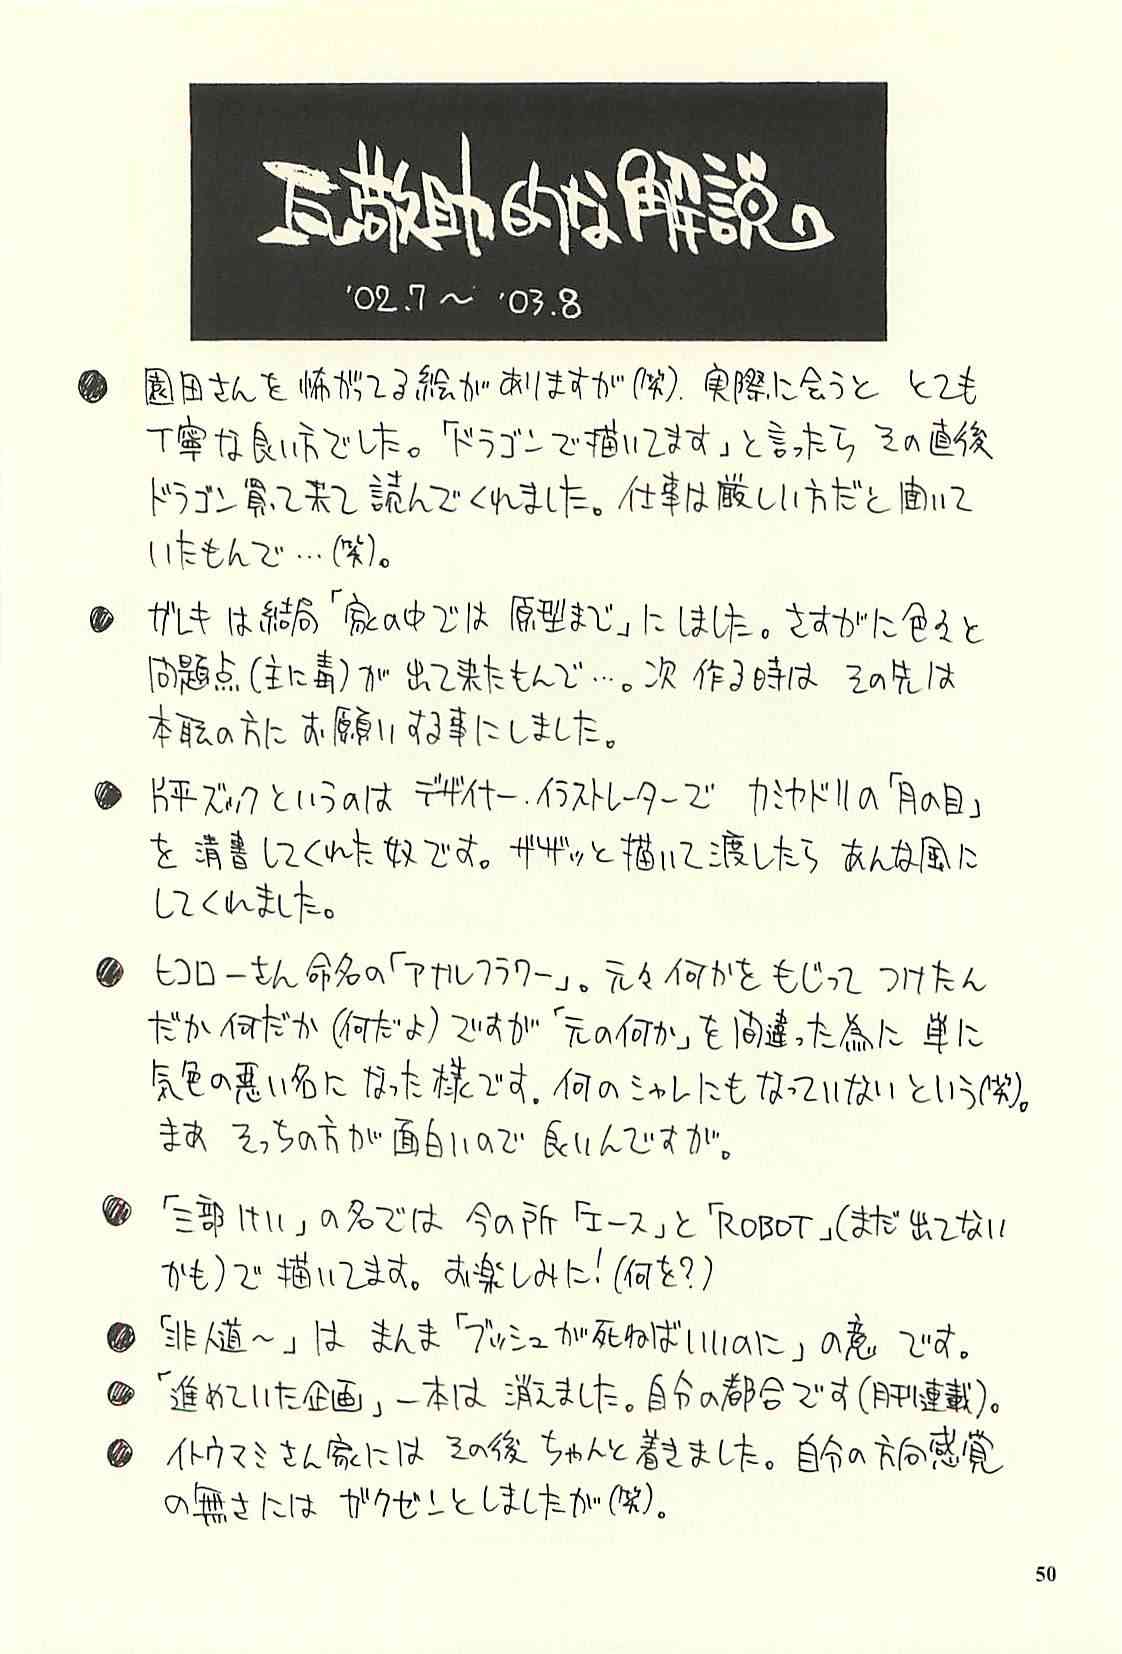 瓦敬助的な解説。
'02.7～ '03.8
● 園田さんを怖がってる絵がありますが(笑). 実際に会うと とても
丁寧な良い方でした。「ドラゴンで描いてます」と言ったら その直後
ドラゴン買って来て 読んでくれました。仕事は厳しい方だと聞いて
いたもんで…(笑)。
● ガレキは結局「家の中では 原型まで」にしました。さすがに色々と
問題点(主に毒)が 出て来たもんで…。次 作る時は その先は
本職の方に お願いする事にしました。
● 片平ズックというのは デザイナー.イラストレーターで カミヤドリの「月の目」
を 清書してくれた奴です。ザザッと描いて渡したら あんな風に
してくれました。
● ヒコローさん命名の「アカルフラワー」。元々何かを もじって つけたん
だか何だか(何だよ)ですが「元の何か」を間違った為に 単に
気色の悪い名に なった様です. 何のシャレにもなっていないという(笑)。
まあ そっちの方が面白いので 良いんですが。
● 「三部けい」の名では 今の所「エース」と「ROBOT」(まだ出てない
かも)で 描いてます。お楽しみに!(何を?)
● 「非人道～」は まんま「ブッシュが死ねばいいのに」の意 です。
● 「進めていた企画」一本は 消えました。自分の都合です(月刊連載)。
● イトウマミさん家には その後 ちゃんと着きました。自分の方向感覚
の無さには ガクゼンとしましたが(笑)。
50